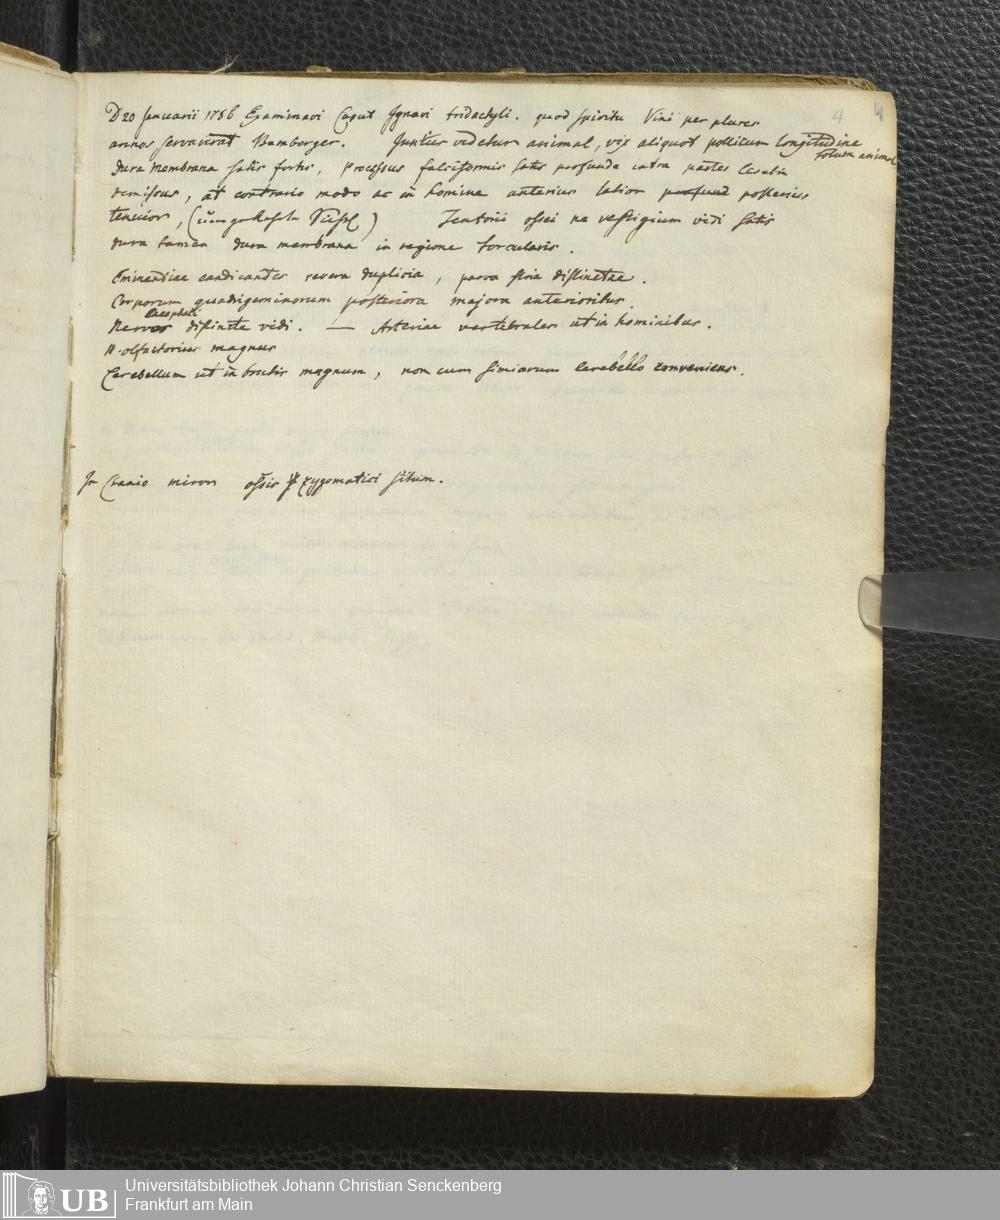 4 4
D 20 Januarii 1786 Examinavi Caput Ignavi tridactyli. quod spiritu Vini per plures
annos servaverat Bamberger. Junius videtur animal, vix aliquot pollicum longitudine
totum animal
Dura membrana satis fortis, Processus falciformis satis profunde intra partes Cerebri
demissus, at contrario modo ac in homine anterius latior profund posterius
tenuior, ( ) Tentorii ossei ne vestigium vidi satis
dura tamen dura membrana in regione torcularis.
Eminentiae candicantes revera duplicia, parva stria distinctae.
Corporum quadrigeminorum posteriora majora anterioribus.
Nervos distincte vidi. — Arteriae vertebrales ut in hominibus.
N. olfactorius magnus
Cerebellum ut in brutis magnum, non cum simiarum Cerebello conveniens.
In Cranio miror ossis zygomatici situm.
UB Universitätsbibliothek Johann Christian Senckenberg
Frankfurt am Main